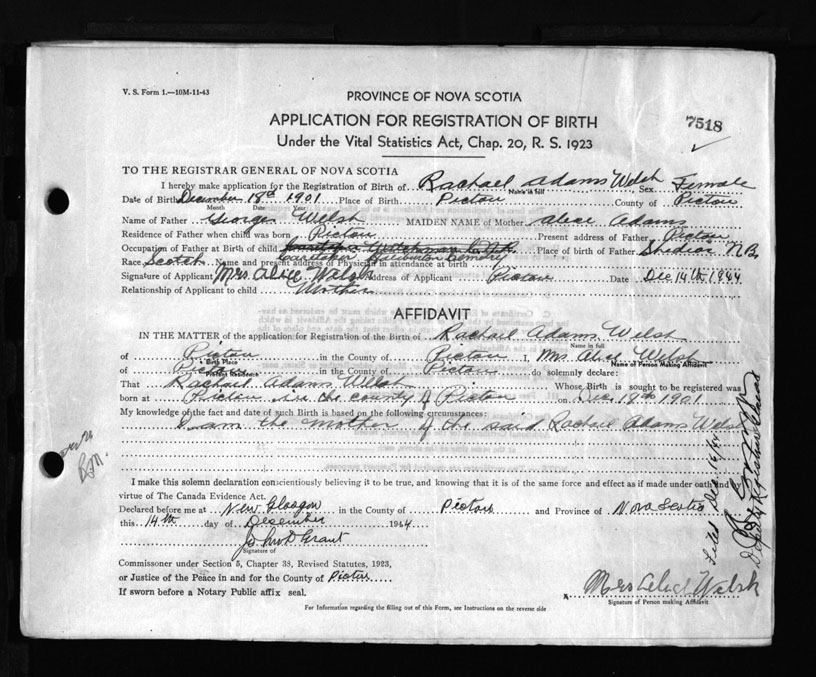 V. S. Form 1.—10M-11-43
PROVINCE OF NOVA SCOTIA
APPLICATION FOR REGISTRATION OF BIRTH
7518
Under the Vital Statistics Act, Chap. 20, R. S. 1923
TO THE REGISTRAR GENERAL OF NOVA SCOTIA
I hereby make application for the Registration of Birth of Rachael Adams Welsh Sex Female
Name in full
Date of Birth December 18th 1901 Place of Birth Pictou County of Pictou
Month Date Year
Name of Father George Welsh MAIDEN NAME of Mother Alice Adams
Residence of Father when child was born Pictou Present address of Father Pictou
Occupation of Father at Birth of child Place of birth of Father Shediac N.B.
Caretaker
Race Scotch Name and present address of Physician in attendance at birth
Signature of Applicant Mrs. Alice Welsh Address of Applicant Pictou Date Dec 14th 1944
Relationship of Applicant to child Mother
AFFIDAVIT
IN THE MATTER of the application for Registration of the Birth of Rachael Adams Welsh
Name in full
of Pictou in the County of Pictou I, Mrs Alice Welsh
Birth Place Name of Person Making Affidavit
of Pictou in the County of Pictou do solemnly declare:
Present Residence
That Rachael Adams Welsh Whose Birth is sought to be registered was
born at Pictou in the county of Pictou on Dec 18th 1901
My knowledge of the fact and date of such Birth is based on the following circumstances:
I am the mother of the said Rachael Adams Welsh
I make this solemn declaration conscientiously believing it to be true, and knowing that it is of the same force and effect as if made under oath and by
virtue of The Canada Evidence Act.
Declared before me at New Glasgow in the County of Pictou and Province of Nova Scotia
this 14th day of December 1944
John D Grant
Signature of
Commissioner under Section 5, Chapter 38, Revised Statutes, 1923,
or Justice of the Peace in and for the County of Pictou
If sworn before a Notary Public affix seal.
Mrs Alice Welsh
Signature of Person making Affidavit
For Information regarding the filling out of this Form, see Instructions on the reverse side
Filed Dec 16/44
Deputy Registrar General